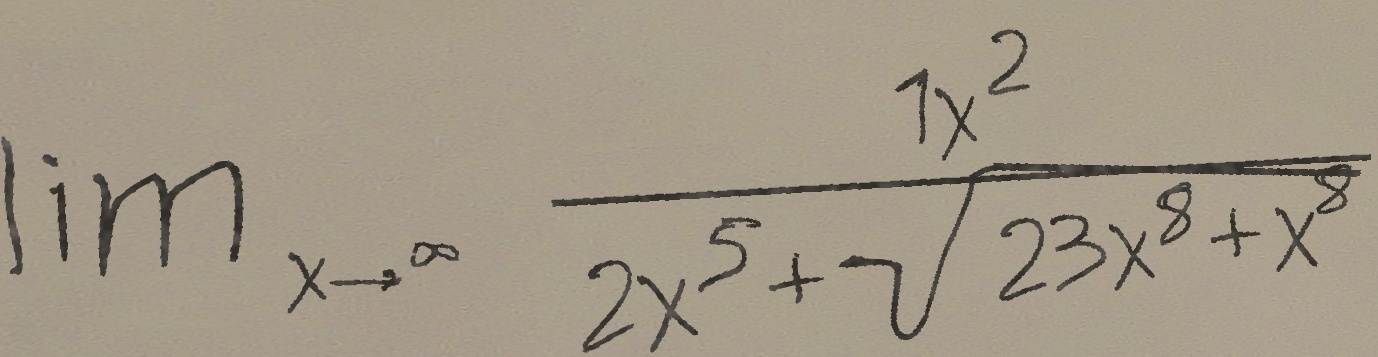 \lim_{x \to \infty} \frac{1x^2}{2x^5 + \sqrt{23x^8 + x^8}}